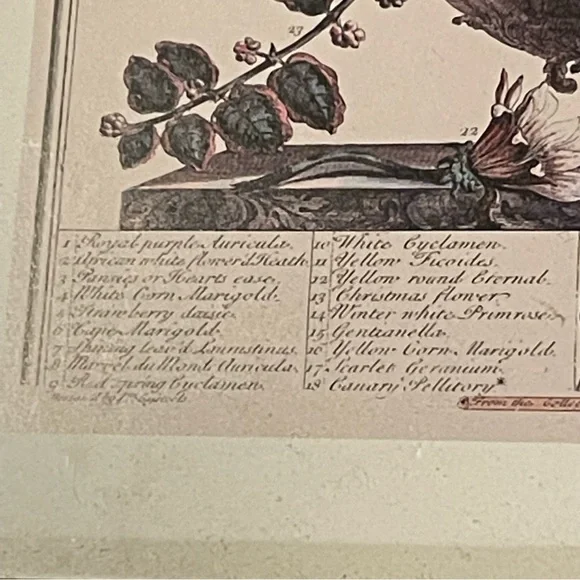 23
22
1 Royal purple Auricula.
2 African white flower'd Heath.
3 Pansies or Hearts ease.
4 White Corn Marigold.
5 Strawberry daisie
6 Cape Marigold.
7 leav'd Laurustinus.
8 Marvel du Mond Auricula.
9 Red spring Cyclamen.
10 White Cyclamen.
11 Yellow Ficoides.
12 Yellow round Eternal.
13 Christmas flower
14 Winter white Primrose
15 Gentianella.
16 Yellow Corn Marigold.
17 Scarlet Geranium
18 Canary Pellitory*
From the Colle